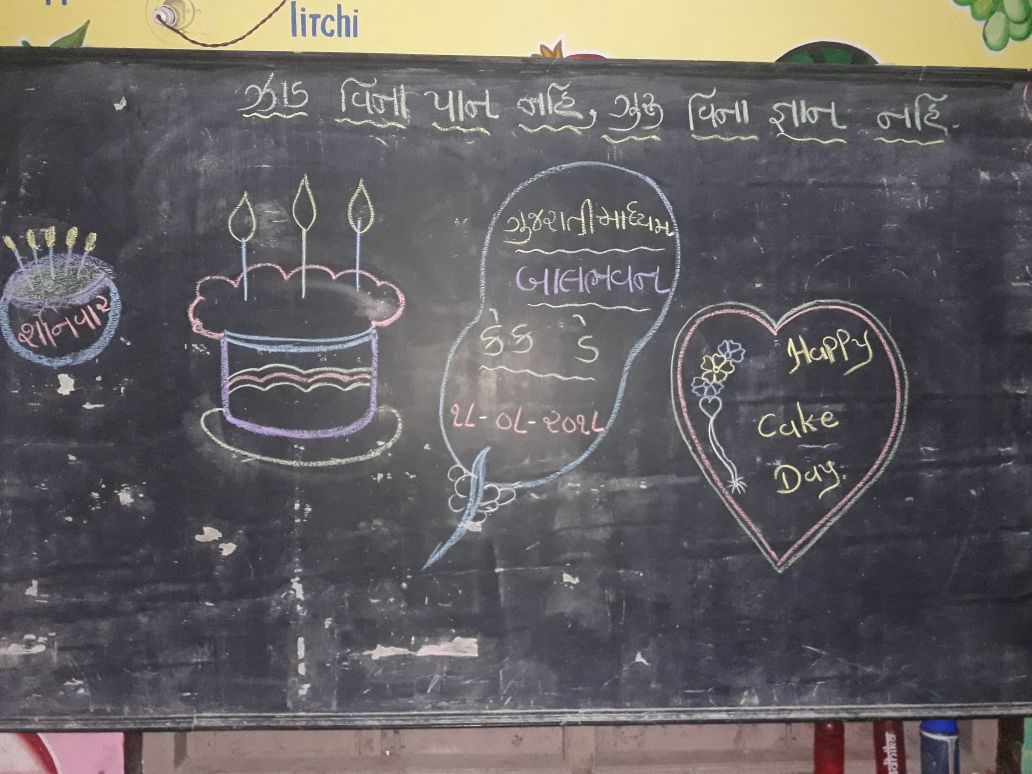 litchi
ઝાડ વિના પાન નહિ, ગુરુ વિના જ્ઞાન નહિ.
શનિવાર
ગુજરાતી માધ્યમ
બાલભવન
કેક ડે
૧૮-૦૮-૨૦૧૮
Happy
Cake
Day.